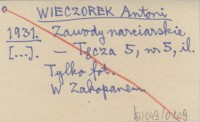 WIECZOREK Antoni
1931. Zawody narciarskie
[...]. — Tęcza 5, nr. 5, il.
Tylko fot.
W Zakopanem.